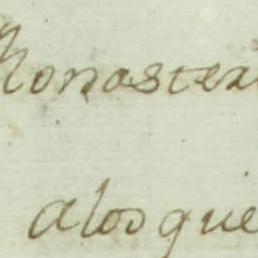 Monasteri
alosque